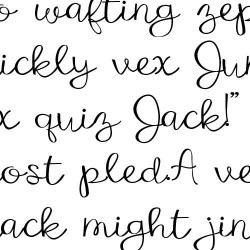 o wafting zep
ickly vex Jun
x quiz Jack!"
ost pled.A ve
ack might jin